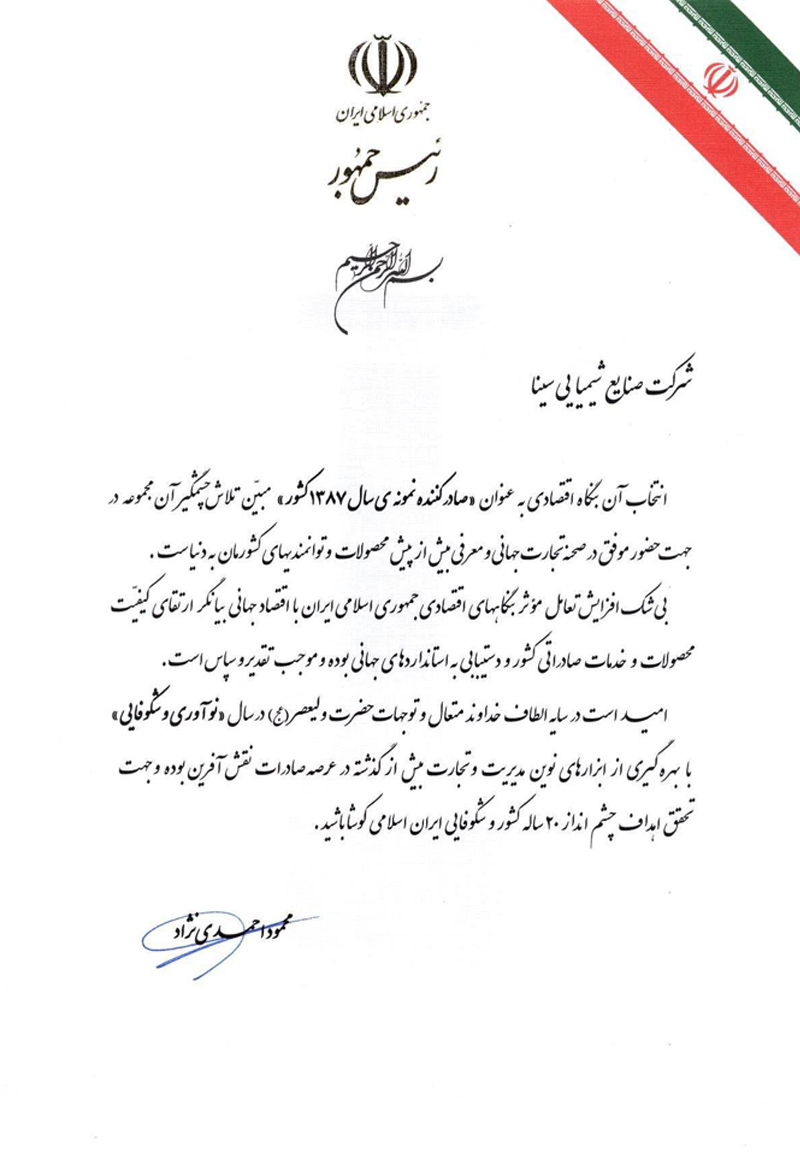 جمهوری اسلامی ایران
رئیس جمهور
بسم الله الرحمن الرحیم
شرکت صنایع شیمیایی سینا
انتخاب آن بنگاه اقتصادی به عنوان «صادرکننده نمونه ی سال ۱۳۸۷ کشور» مبیّن تلاش چشمگیر آن مجموعه در
جهت حضور موفق در صحنه تجارت جهانی و معرفی بیش از پیش محصولات و توانمندیهای کشورمان به دنیاست .
بی شک افزایش تعامل مؤثر بنگاههای اقتصادی جمهوری اسلامی ایران با اقتصاد جهانی بیانگر ارتقای کیفیّت
محصولات و خدمات صادراتی کشور و دستیابی به استانداردهای جهانی بوده و موجب تقدیر و سپاس است .
امید است در سایه الطاف خداوند متعال و توجهات حضرت ولیعصر(عج) در سال «نوآوری و شکوفایی»
با بهره گیری از ابزارهای نوین مدیریت و تجارت بیش از گذشته در عرصه صادرات نقش آفرین بوده و جهت
تحقق اهداف چشم انداز ۲۰ ساله کشور و شکوفایی ایران اسلامی کوشا باشید .
محمود احمدی نژاد